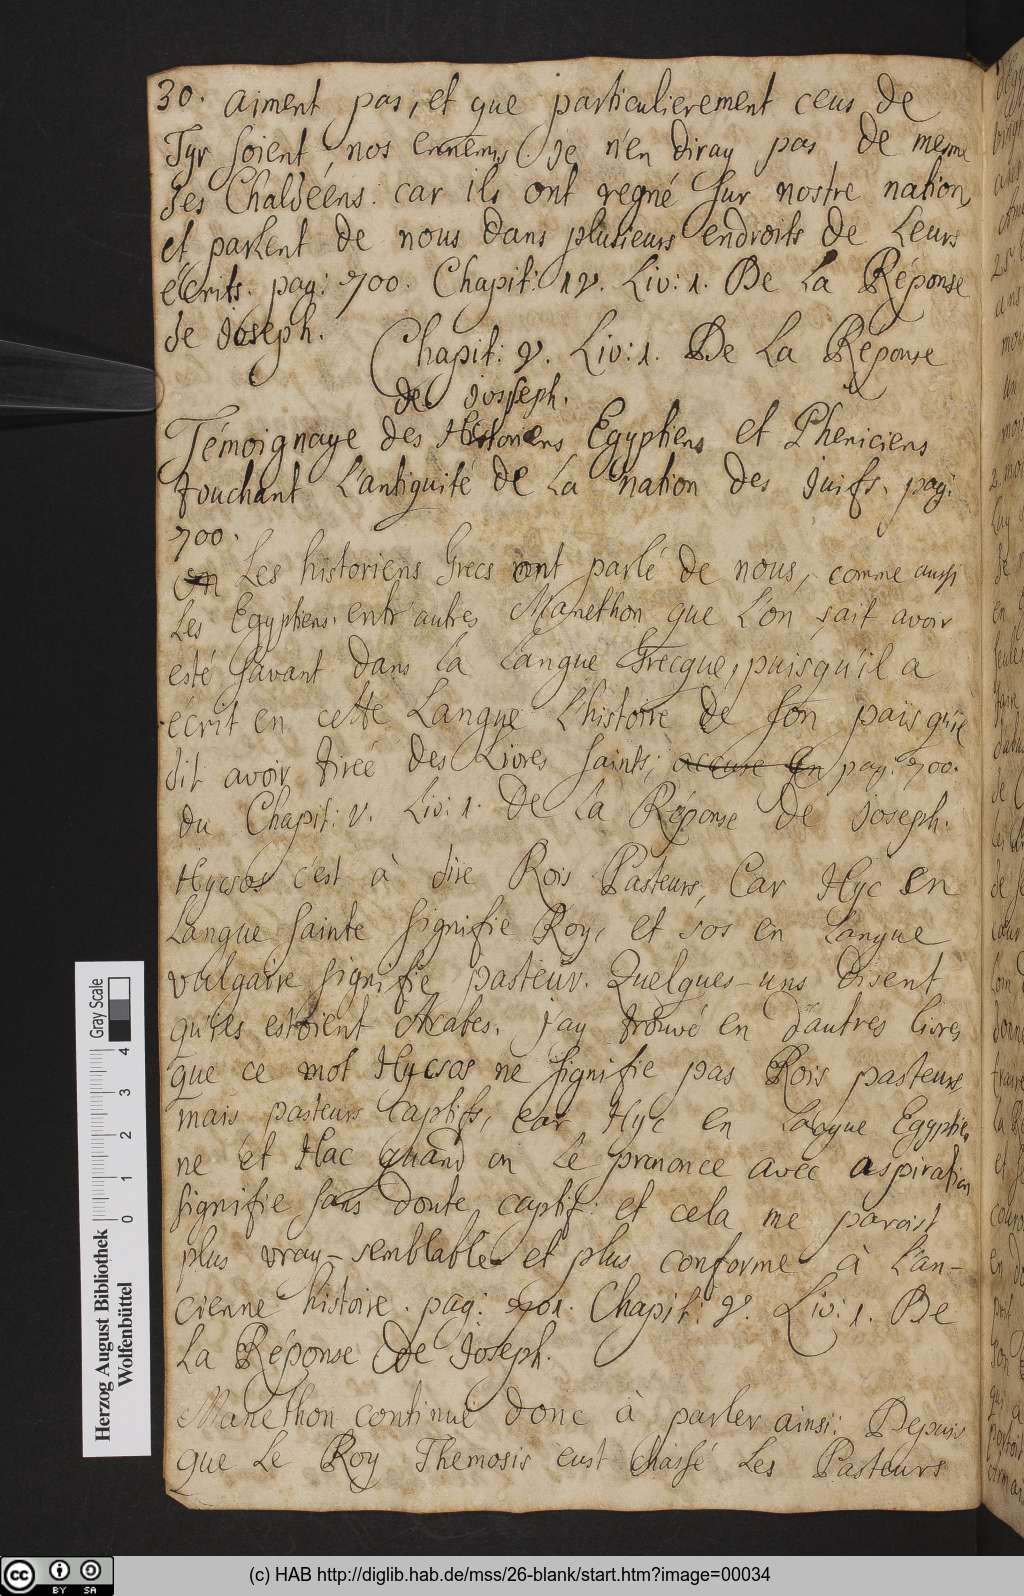 30. aiment pas, et que particulierement ceus de
Tyr soient, nos ennemis. Je n'en diray pas de mesme
des Chaldéens: car ils ont regné sur nostre nation,
et parlent de nous dans plusieurs endroits de Leurs
écrits. pag: 700. Chapit: 1V. Liv: 1. De La Réponse
de Joseph.
Chapit: V. Liv: 1. De La Réponse
de Josseph.
Témoignage des Historiens Egyptiens et Pheniciens
touchant l'antiquité de La nation des Juifs. pag:
700.
Les historiens Grecs ont parlé de nous, comme aussi
Les Egyptiens. entr'autres Manethon que L'on sait avoir
esté savant dans la Langue Grecque, puisqu'il a
écrit en cette Langue l'histoire de son païs qu'il
dit avoir tirée des Livres saints; accuse en pag: 700.
du Chapit: V. Liv: 1. De La Réponse de Joseph.
Hycsos c'est à dire Rois Pasteurs, Car Hyc en
Langue sainte signifie Roy, et sos en Langue
vulgaire signifie pasteur. Quelques-uns disent
qu'iles estoient Arabes. J'ay trouvé en d'autres livres
que ce mot Hycsos ne signifie pas Rois pasteurs
mais pasteurs Captifs, car Hyc en Langue Egyptien
ne et Hac quand on Le prononce avec aspiration
signifie sans doute captif: et cela me paroist
plus vray-semblable et plus conforme à L'an-
cienne histoire. pag: 701. Chapit: V. Liv: 1. De
La Réponse de Joseph.
Manethon continue donc à parler ainsi: Depuis
que Le Roy Themosis eust chassé Les Pasteurs
Herzog August Bibliothek
Wolfenbüttel
0 1 2 3 4
Gray Scale
cc BY SA
(c) HAB http://diglib.hab.de/mss/26-blank/start.htm?image=00034